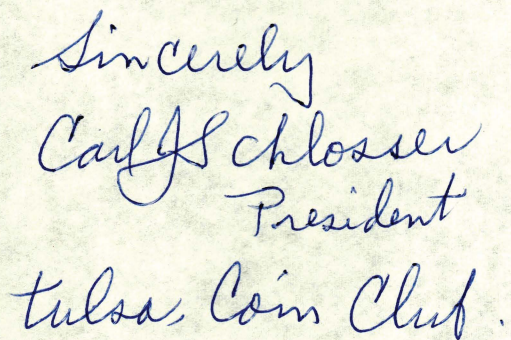 Sincerely
Carl J Schlosser
President
Tulsa, Coin Club.